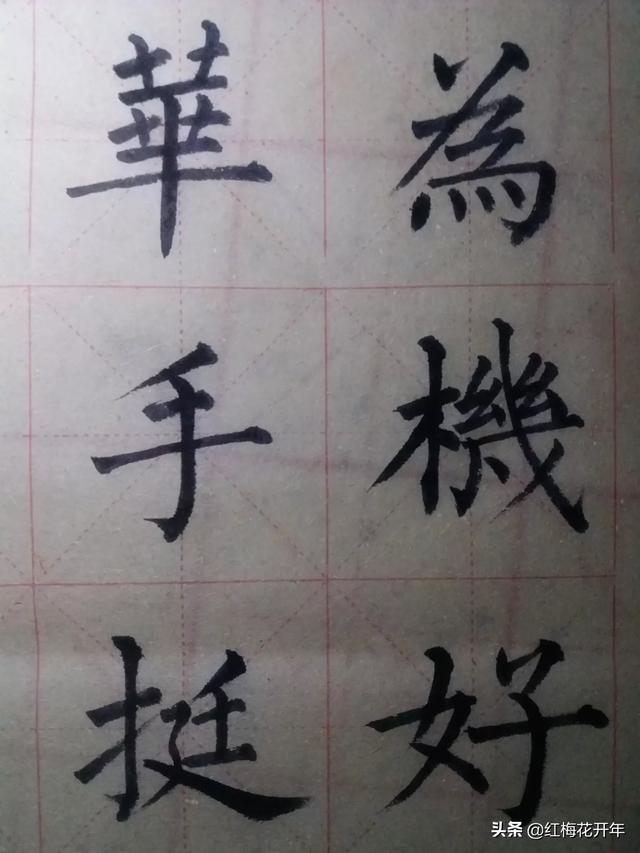 華為
手機
挺好
头条 @红梅花开年